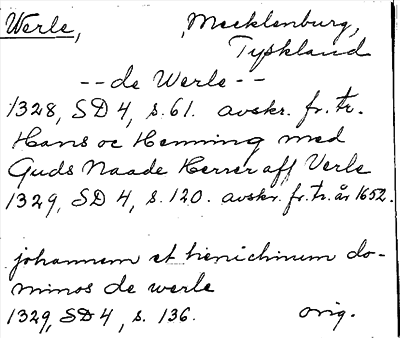 Werle, Mecklenburg,
Tyskland
-- de Werle --
1328, SD 4, s. 61. avskr. fr. tr.
Hans oc Henning med
Guds Naade Herrer aff Verle
1329, SD 4, s. 120. avskr. fr. tr. år 1652.
johannem et henichinum do-
minos de werle
1329, SD 4, s. 136. orig.